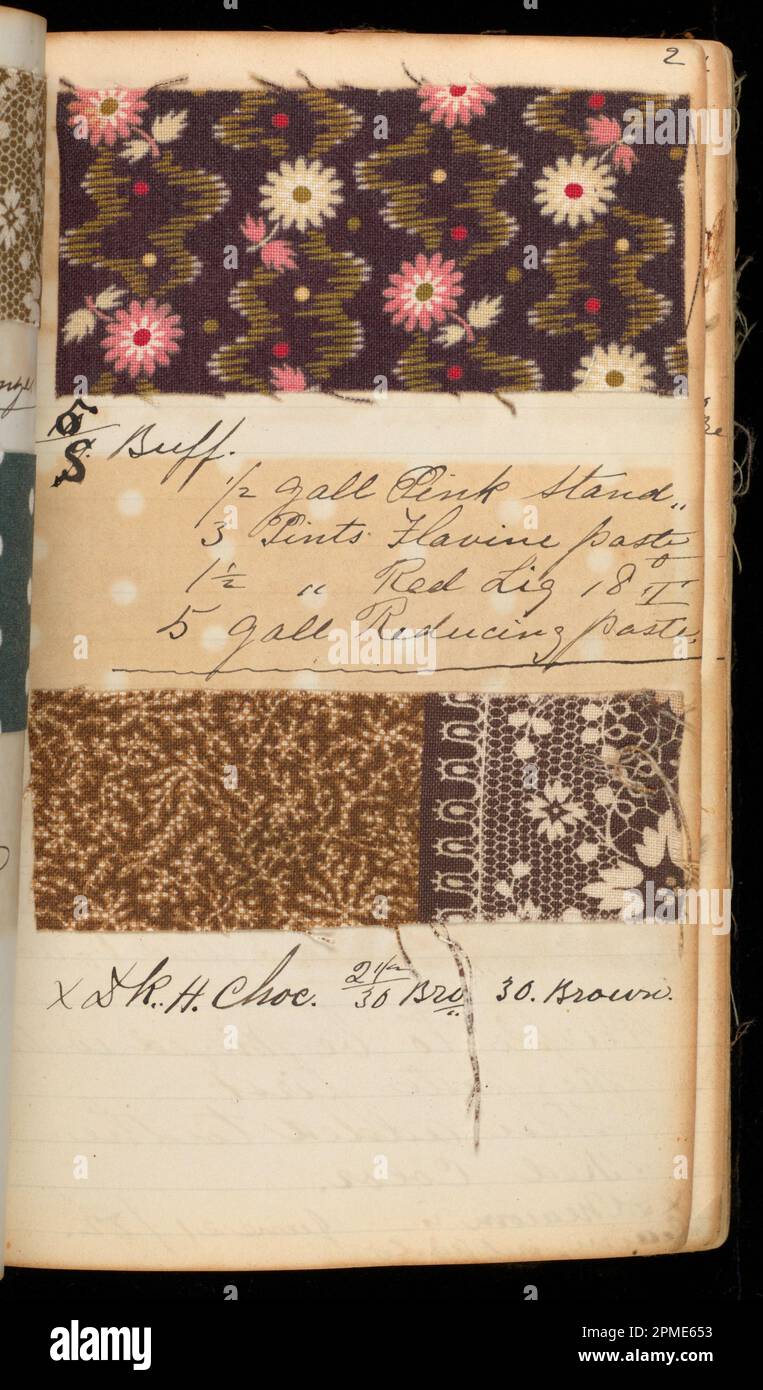 2
5/8. Buff.
1/2 gall Pink Stand,,
3 Pints Flavine paste
1 1/2 " Red Liq 18 °T
5 gall Reducing paste,
x Dk. H. Choc. 30 Bro 30. Brown.
alamy
Image ID: 2PME653
www.alamy.com